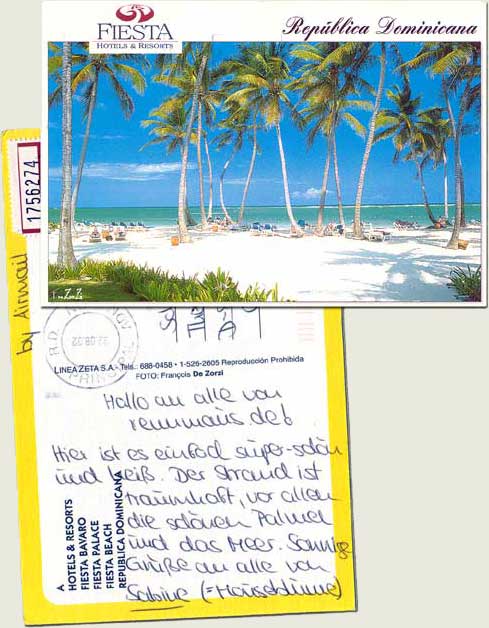 FIESTA
HOTELS & RESORTS
República Dominicana
1756274
by Airmail
22.08.02
LINEA ZETA S.A. - Tels.: 688-0458 • 1-526-2605 Reproducción Prohibida
FOTO: François De Zorzi
Hallo an alle von
rennmaus.de!
Hier ist es einfach super-schön
und heiß. Der Strand ist
traumhaft, vor allem
die schönen Palmen
und das Meer. Sonnige
Grüße an alle von
Sabine (=Mäuseblume)
HOTELS & RESORTS
FIESTA BAVARO
FIESTA PALACE
FIESTA BEACH
REPUBLICA DOMINICANA